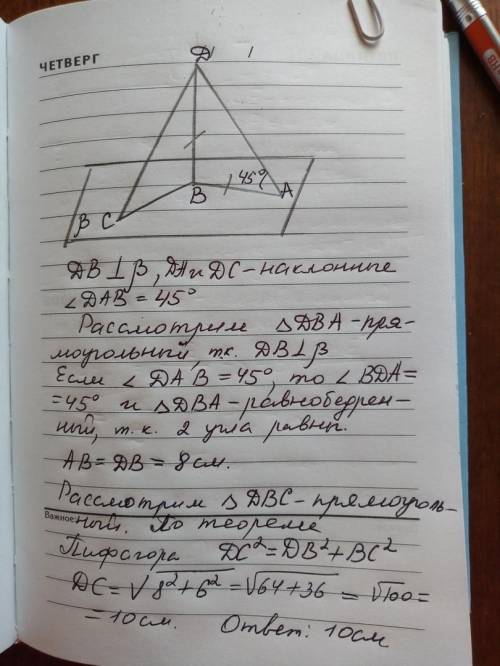 ЧЕТВЕРГ
D
45°
A
B
β C
DB ⊥ β, DA и DC - наклонные
∠DAB = 45°
Рассмотрим △DBA - пря-
моугольный, т.к. DB ⊥ β
Если ∠DAB = 45°, то ∠BDA =
= 45° и △DBA - равнобедрен-
ный, т.к. 2 угла равны.
AB = DB = 8 см.
Рассмотрим △DBC - прямоуголь-
Важное:
ный. По теореме
Пифагора DC² = DB² + BC²
DC = √8² + 6² = √64 + 36 = √100 =
= 10 см. Ответ: 10 см